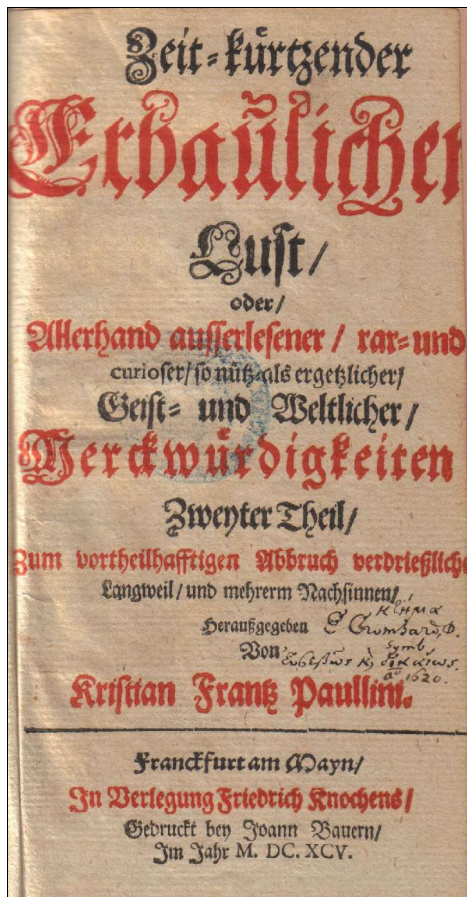 Zeit-kürtzender
Erbaulichen
Lust/
oder/
Allerhand ausserlesener / rar- und
curioser/ so nütz-als ergetzlicher/
Geist- und Weltlicher/
Merckwürdigkeiten
Zweyter Theil/
Zum vortheilhafftigen Abbruch verdrießliche
Langweil/ und mehrerm Nachsinnen/
κτῆμα
Heraußgegeben
Von
Symb.
Kristian Frantz Paullini.
Franckfurt am Mayn/
In Verlegung Friedrich Knochens/
Gedruckt bey Joann Bauern/
Im Jahr M. DC. XCV.